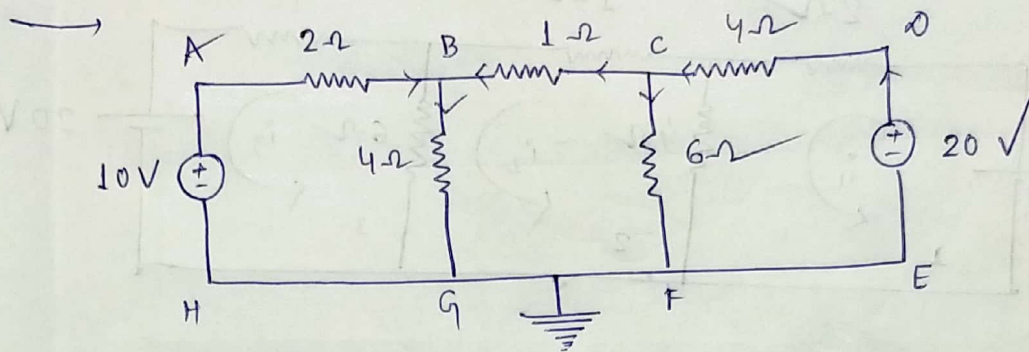 A 2Ω B 1Ω C 4Ω D
10V 4Ω 6Ω 20V
+
-
+
-
H G F E